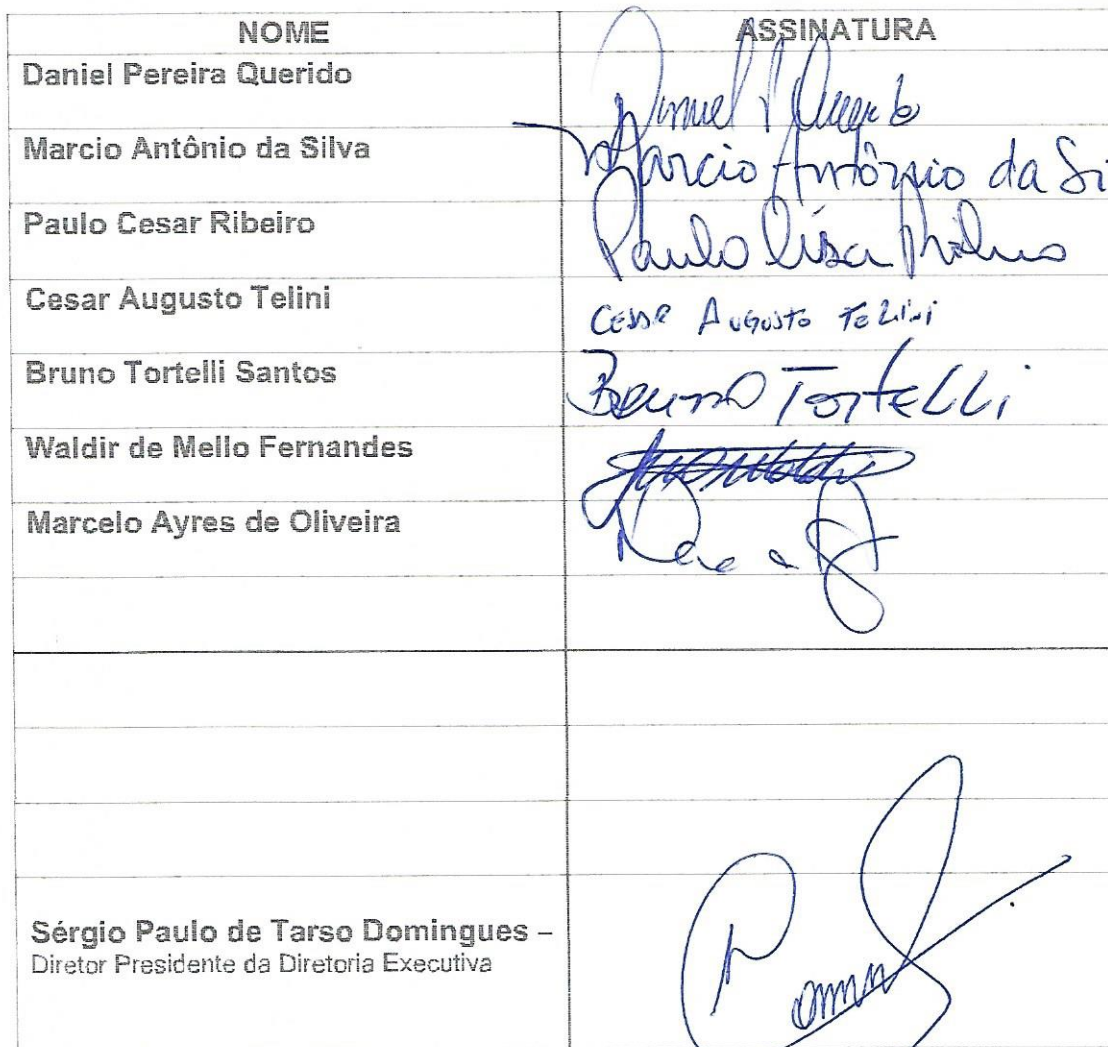 NOME ASSINATURA
Daniel Pereira Querido Daniel P Querido
Marcio Antônio da Silva Marcio Antônio da Si
Paulo Cesar Ribeiro Paulo
Cesar Augusto Telini CESAR AUGUSTO TELINI
Bruno Tortelli Santos Bruno Tortelli
Waldir de Mello Fernandes
Marcelo Ayres de Oliveira
Sérgio Paulo de Tarso Domingues –
Diretor Presidente da Diretoria Executiva